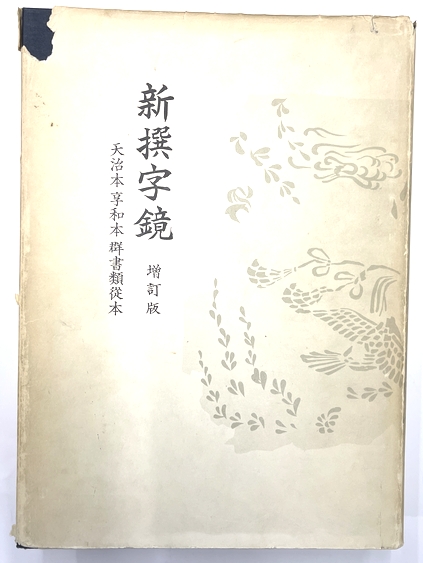 新撰字鏡
増訂版
天治本 享和本 群書類從本